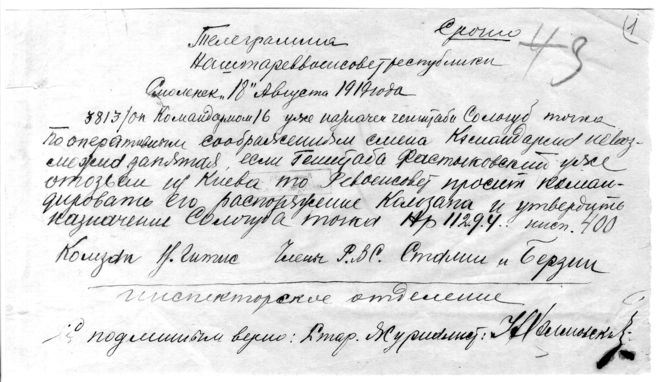 Срочно
(1
43
Телеграмма
Наштареввоенсовет республики
Смоленск "18" Августа 1919 года
3813/оп Командармом 16 уже назначен генштаба Сологуб точка
По оперативным соображениям смена Командарма невоз-
можна запятая, если Генштаба Фастыковский уже
отозван из Киева то Реввоенсовет просит коман-
дировать его распоряжение Комзапа и утвердить
назначение Сологуба точка Нр 11294. 400
Комзап Гитис Члены Р.В.С. Сталин и Берзин
инспекторское отделение
с подлинным верно: Стар. Журналист: